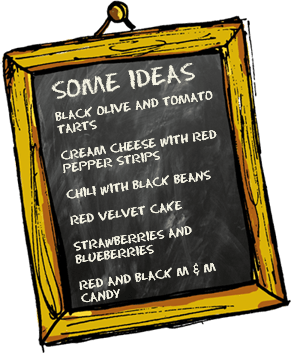 SOME IDEAS
BLACK OLIVE AND TOMATO
TARTS
CREAM CHEESE WITH RED
PEPPER STRIPS
CHILI WITH BLACK BEANS
RED VELVET CAKE
STRAWBERRIES AND
BLUEBERRIES
RED AND BLACK M & M
CANDY